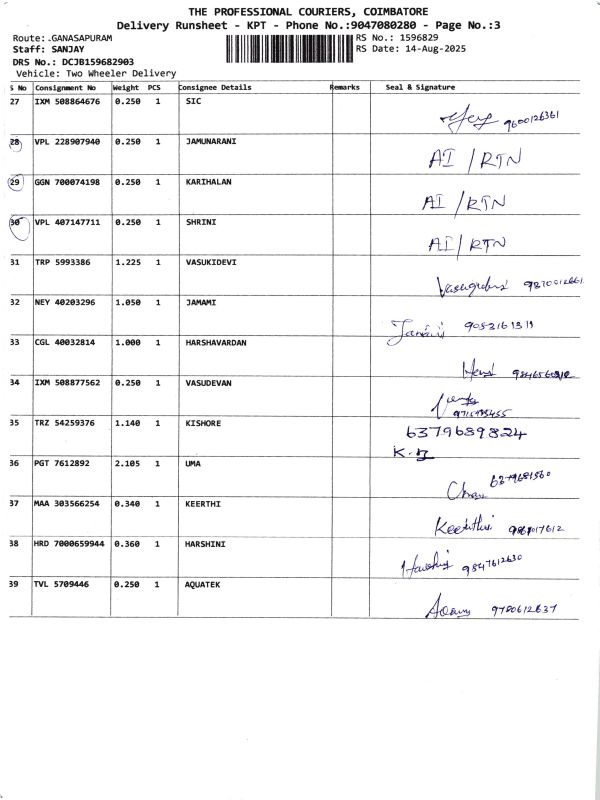 THE PROFESSIONAL COURIERS, COIMBATORE
Delivery Runsheet - KPT - Phone No.:9047080280 - Page No.:3
Route: GANASAPURAM RS No.: 1596829
Staff: SANJAY RS Date: 14-Aug-2025
DRS No.: DCJB159682903
Vehicle: Two Wheeler Delivery
S No Consignment No Weight PCS Consignee Details Remarks Seal & Signature
27 IXM 508864676 0.250 1 SIC
9600126361
28 VPL 228907940 0.250 1 JAMUNARANI
AI / RTN
29 GGN 700074198 0.250 1 KARIHALAN
AI / RTN
30 VPL 407147711 0.250 1 SHRINI
AI / RTN
31 TRP 5993386 1.225 1 VASUKIDEVI
32 NEY 40203296 1.050 1 JAMAMI
33 CGL 40032814 1.000 1 HARSHAVARDAN
34 IXM 508877562 0.250 1 VASUDEVAN
35 TRZ 54259376 1.140 1 KISHORE
6379689824
36 PGT 7612892 2.105 1 UMA
37 MAA 303566254 0.340 1 KEERTHI
Keerthi
38 HRD 7000659944 0.360 1 HARSHINI
9847612630
39 TVL 5709446 0.250 1 AQUATEK
9780612637